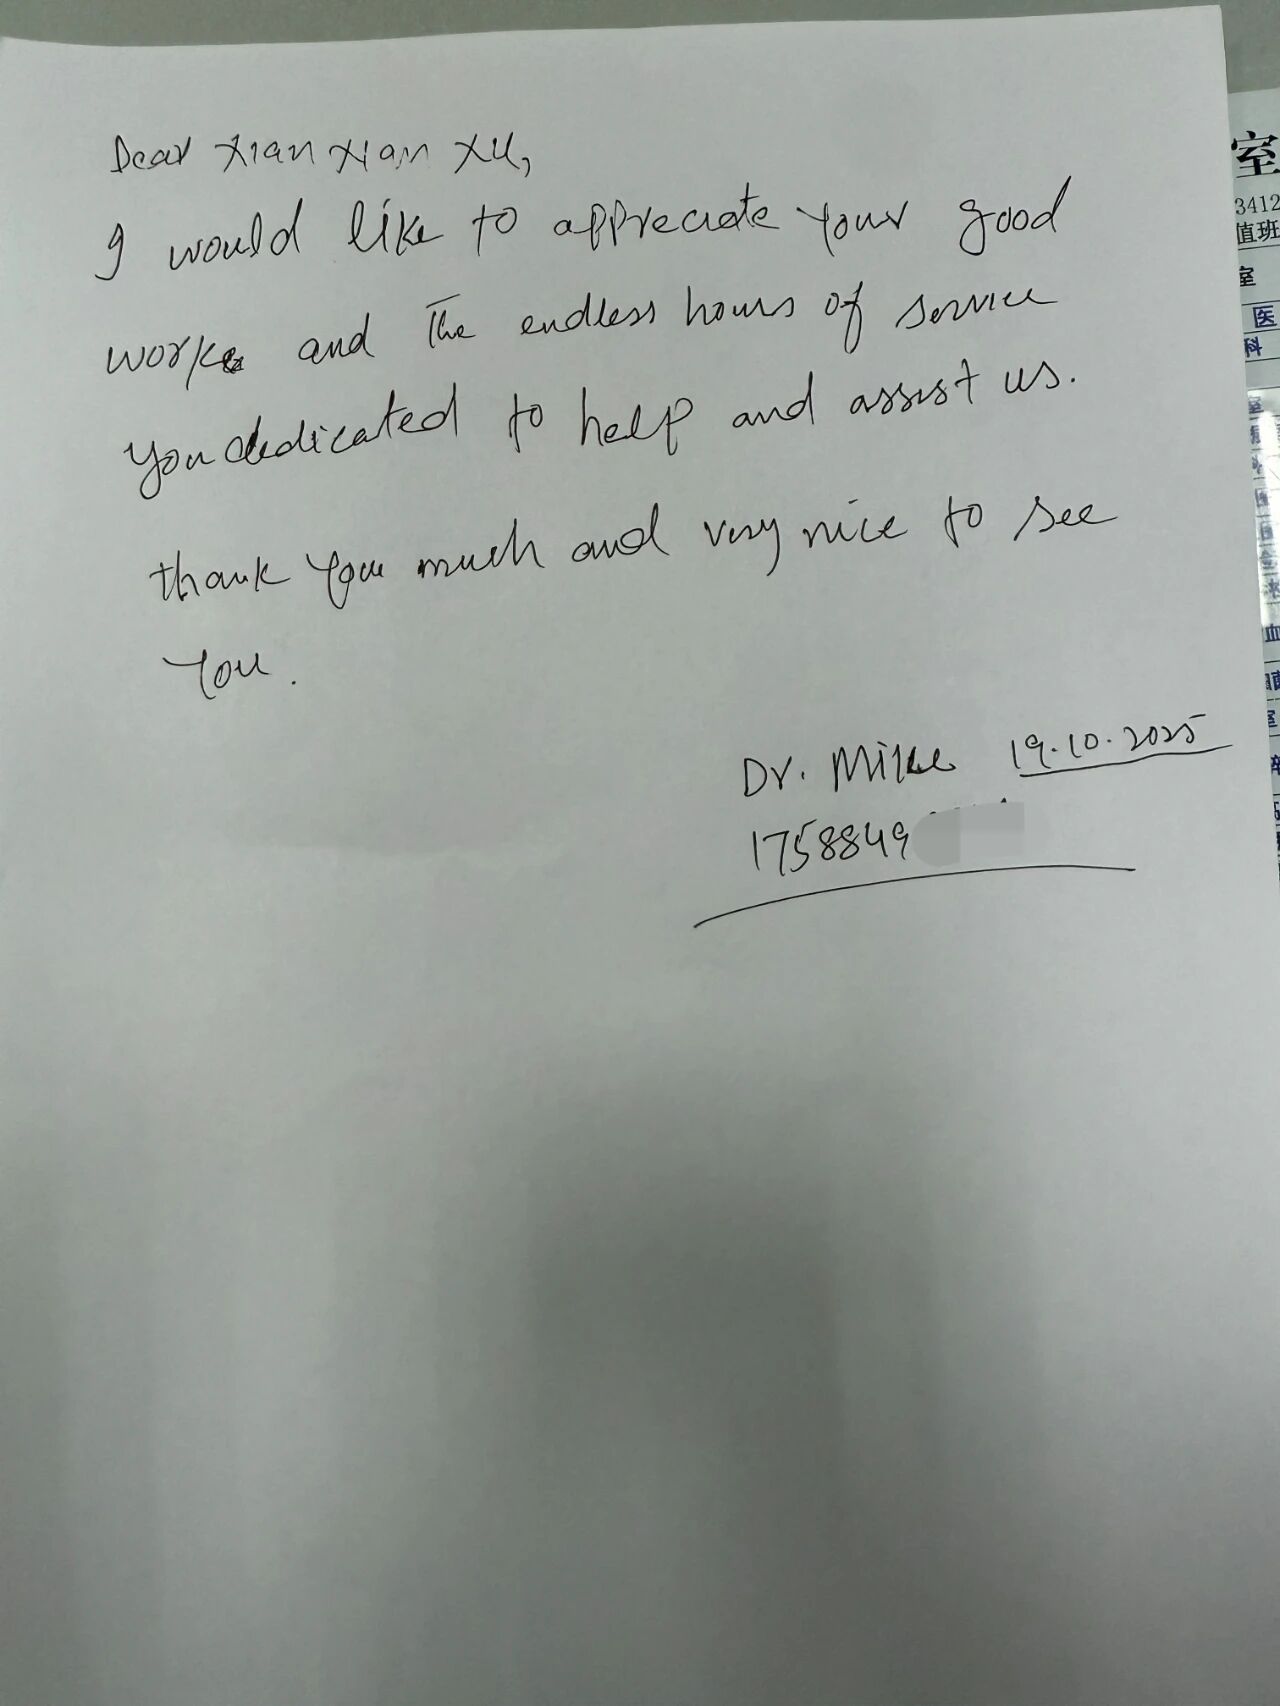 Dear Xian Xian XU,
I would like to appreciate your good
work and The endless hours of service
you dedicated to help and assist us.
thank you much and very nice to see
You.
Dr. Mike 19.10.2025
1758849
室
3412
值班
室
医
科